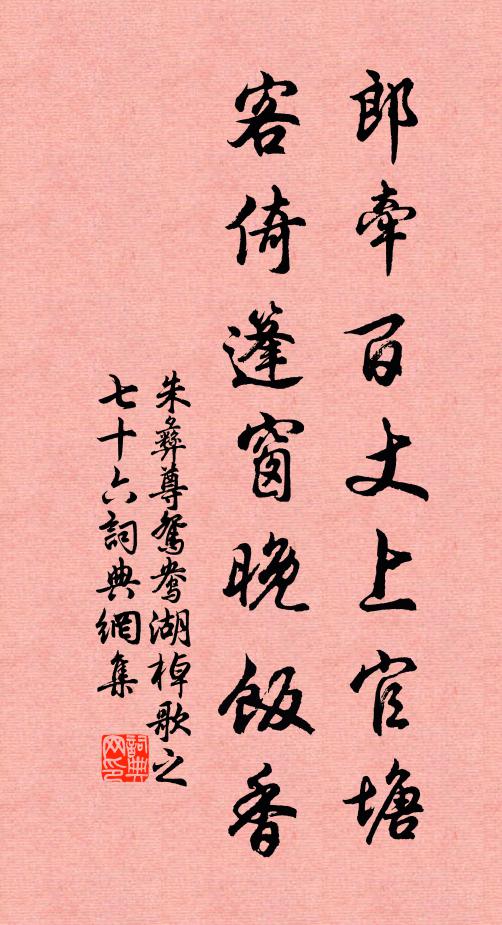 郎牽百丈上官塘
客倚篷窗晚飯香
朱彝尊鴛鴦湖棹歌之
七十六詞典網集
詞典
网印